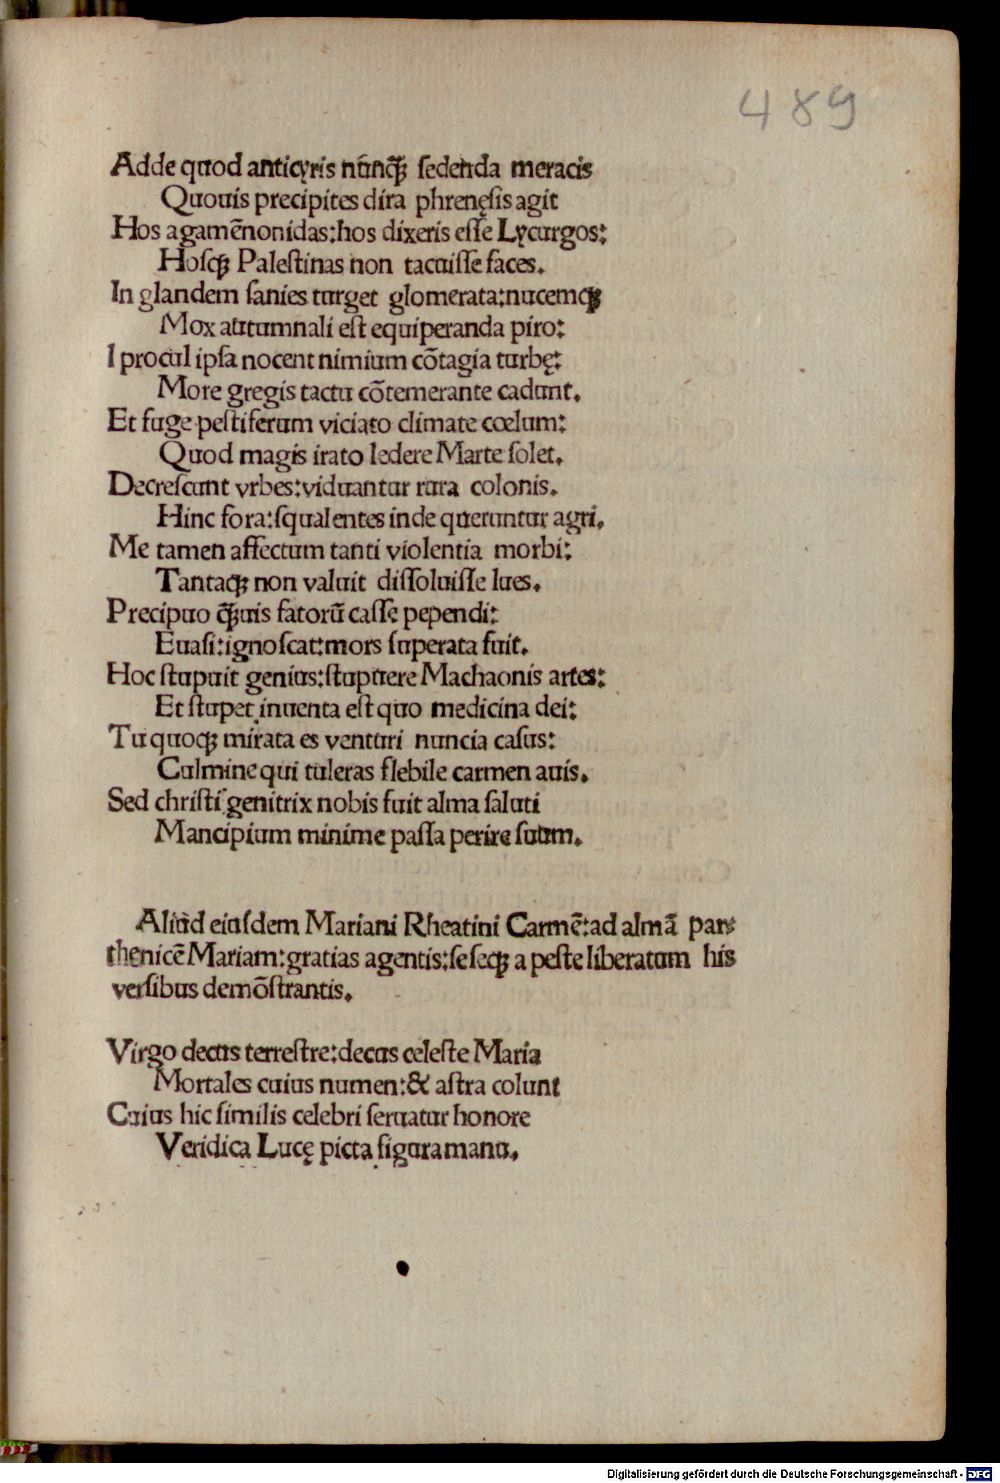 489
Adde quod anticyris nūnꝙ̃ sedenda meracis
Quouis precipites dira phrenęsis agit
Hos agamēnonidas: hos dixeris eſſe Lycurgos:
Hoſqꝫ Paleſtinas non tacuiſſe faces.
In glandem ſanies turget glomerata: nucemqꝫ
Mox autumnali eſt equiperanda piro:
I procul ipſa nocent nimium cōtagia turbę:
More gregis tactu cōtemerante cadunt.
Et fuge peſtiferum viciato climate cœlum:
Quod magis irato ledere Marte ſolet.
Decreſcunt vrbes: viduantur rura colonis.
Hinc fora: ſqualentes inde queruntur agri.
Me tamen affectum tanti violentia morbi:
Tantaqꝫ non valuit diſſoluiſſe lues.
Precipuo ꝙ̃uis fatorū caſſe pependi:
Euaſi: ignoſcat: mors ſuperata fuit.
Hoc ſtupuit genius: ſtupuere Machaonis artes:
Et ſtupet inuenta eſt quo medicina dei:
Tu quoqꝫ mirata es venturi nuncia caſus:
Culmine qui tuleras flebile carmen auis.
Sed chriſti genitrix nobis fuit alma ſaluti
Mancipium minime paſſa perire ſuum.
Aliud eiuſdem Mariani Rheatini Carmē: ad almā par⸗
thenicē Mariam: gratias agentis: ſeſeqꝫ a peſte liberatum his
verſibus demōſtrantis.
Virgo decus terreſtre: decus celeſte Maria
Mortales cuius numen: & aſtra colunt
Cuius hic ſimilis celebri ſeruatur honore
Veridica Lucę picta figura manu.
Digitalisierung gefördert durch die Deutsche Forschungsgemeinschaft - DFG